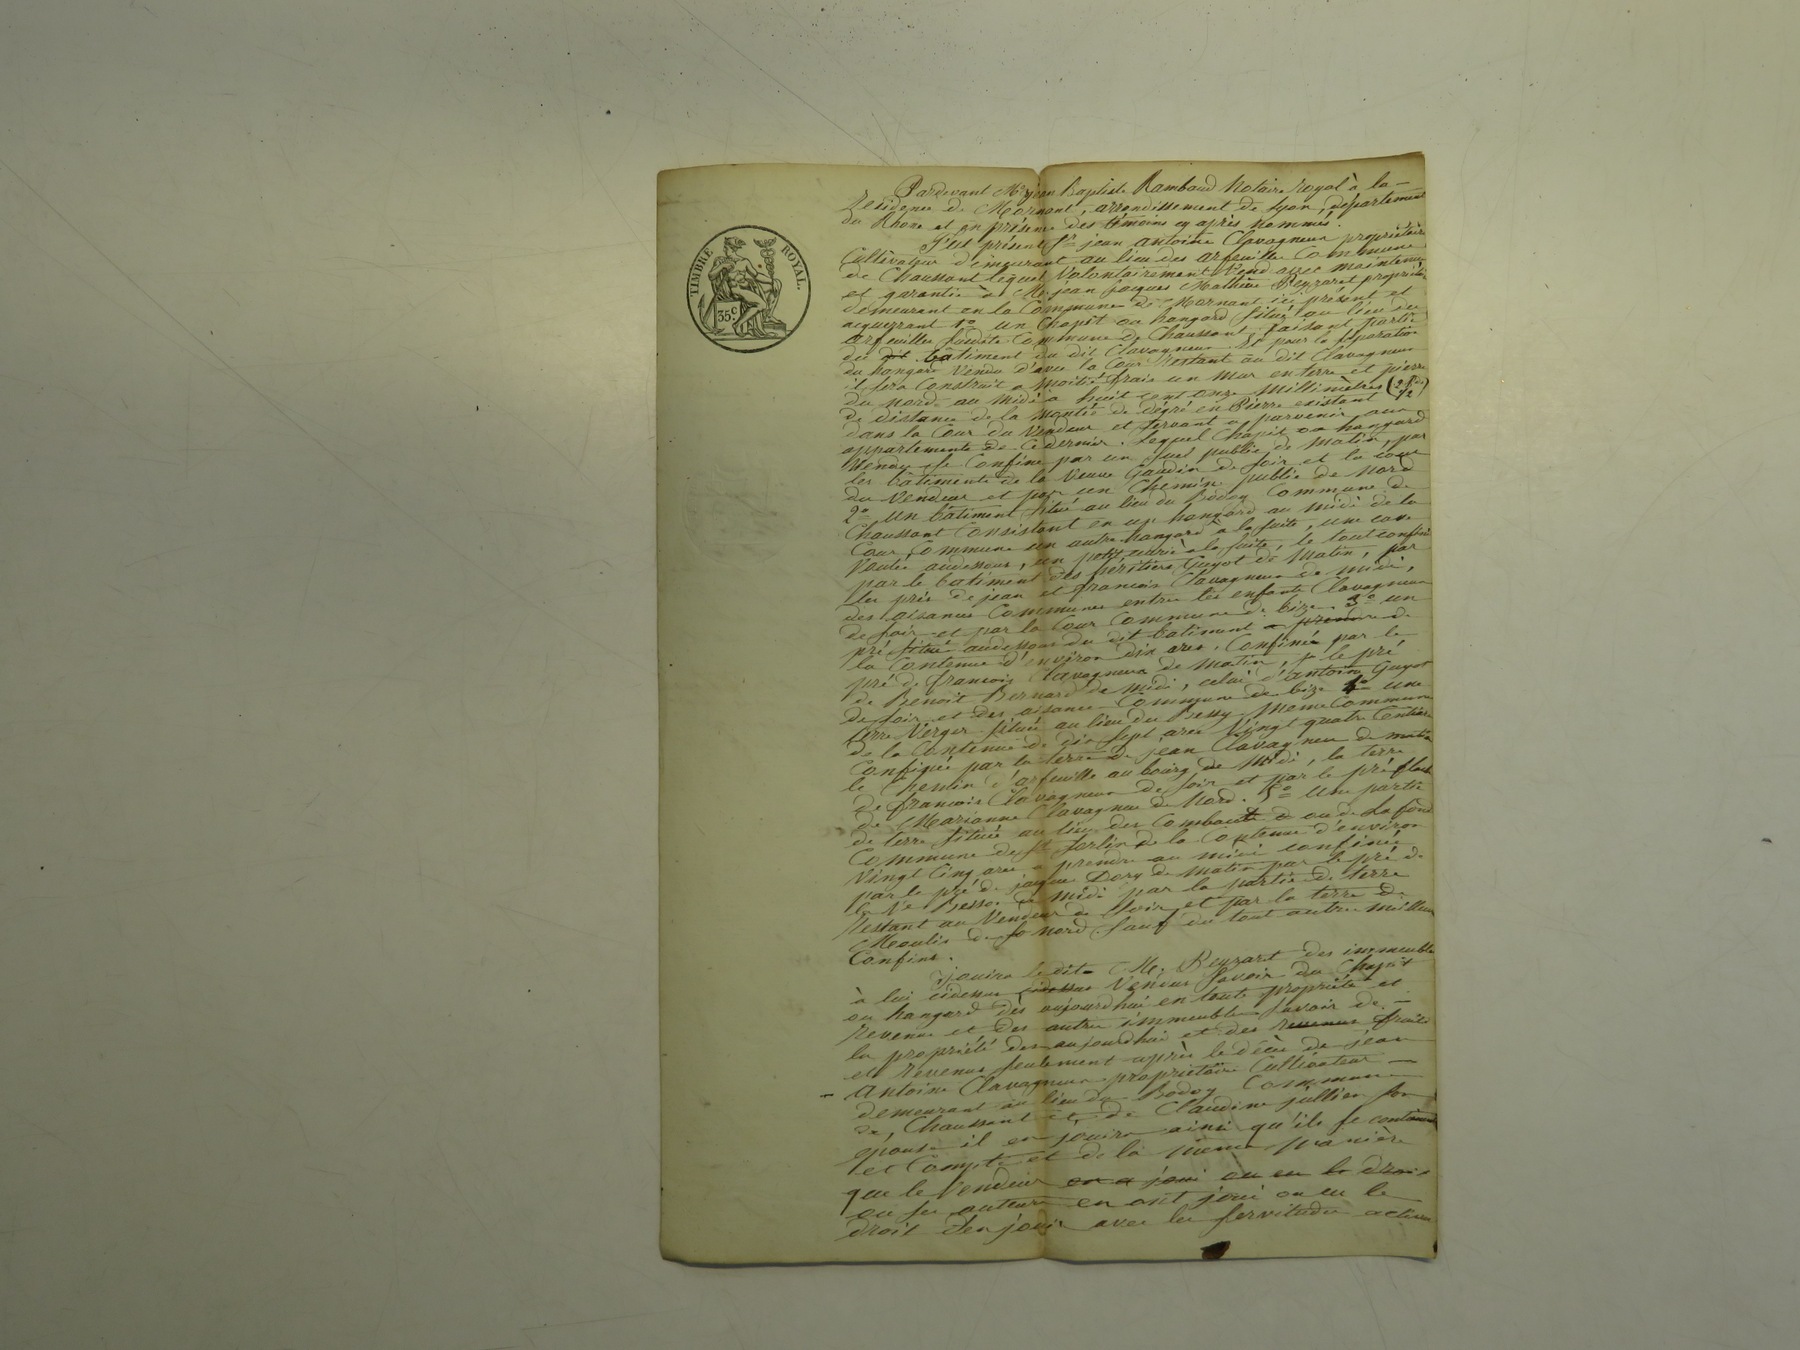 TIMBRE ROYAL.
35 c.
Pardevant Me jean Baptiste Rambaud Notaire royal à la
Résidence de Mornant, arrondissement de Lyon, département
du Rhone et en présence des témoins cy après nommés.
S'est présent Sr jean antoine Clavagneux propriétaire
Cultivateur demeurant au lieu des arfeuilles Commune
de Chaussant lequel Volontairement Vend avec maintenue
et garantie à Me jean jacques Mathieu Peyzaret propriétaire
demeurant en la Commune de Mornant ici présent et
acquerrant 1º un Chapit ou hangard situé au lieu des
arfeuilles susdite Commune de Chaussant faisant partie
du dit bâtiment du dit Clavagneux. Et pour la séparation
du hangard Vendu d'avec la Cour restant au dit Clavagneux
il sera Construit a moitié frais un mur en terre et pierre
du nord au midi a huit cent onze millimètres
de distance de la montée de dégré en Pierre existant
dans la Cour du Vendeur et servant a parvenir aux
appartements de Ce dernier. lequel Chapit ou hangard
Vendu se Confine par un publie de matin, par
les batiments de la Veuve Gaudin de soir et la cour
du Vendeur et par un Chemin public de Nord
2º Un bâtiment situé au lieu du Bodoy Commune de
Chaussant Consistant en un hangard au midi de la
Cour Commune un autre hangard à la suite, une cave
Voutée audessous, un petit à la suite, le tout confiné
par le batiment des héritiers Guyot de Matin, par
les prés de jean et françois Clavagneux de midi,
des aisances Communes entre les enfants Clavagneux
de soir et par la Cour Commune de bize 3º un
pré situé audessous du dit batiment a prendre de
la Contenue d'environ dix ares, Confiné par le
pré de françois Clavagneux de matin, p le pré
de Benoit Bernard de midi, celui d'antoine Guyot
de soir et des aisances Commune de bize 4º une
terre Verger située au lieu du Bessy meme Commune
de la Contenue de dix sept ares Vingt quatre Centiares
Confinée par la terre de jean Clavagneux de matin
le Chemin d'arfeuille au bourg de Midi, la terre
de françois Clavagneux de soir et par le pré
de Marianne Clavagneux de Nord. 5º Une partie
de terre située au lieu des Combaut ou de La fond
Commune de St Sorlin de la Contenue d'environ
Vingt Cinq ares a prendre au midi confinée
par le pré de jacques Dory de matin par le pré de
la Ve Besson de midi par la partie de terre
restant au Vendeur de soir et par la terre de
Moulis de so nord sauf de tout autres meilleurs
Confins.
jouira ledit Me. Peyzaret des immeubles
à lui cidessus cidessus Vendus savoir du Chapit
ou hangard dès aujourdhui en toute propriété et
revenus et des autres immeubles savoir de
la propriété des aujourdhui et des revenus fruits
et revenus seulement après le décès de jean
antoine Clavagneux propriétaire Cultivateur
demeurant au lieu du Bodoy Commune
de Chaussant et de Claudine jullien son
épouse il en jouira ainsi qu'ils se contiennent
et Comptent et de la meme manière
que le Vendeur en a joui ou eu le droit
ou ses auteurs en ont joui ou eu le
droit d'en jouir avec les servitudes actives